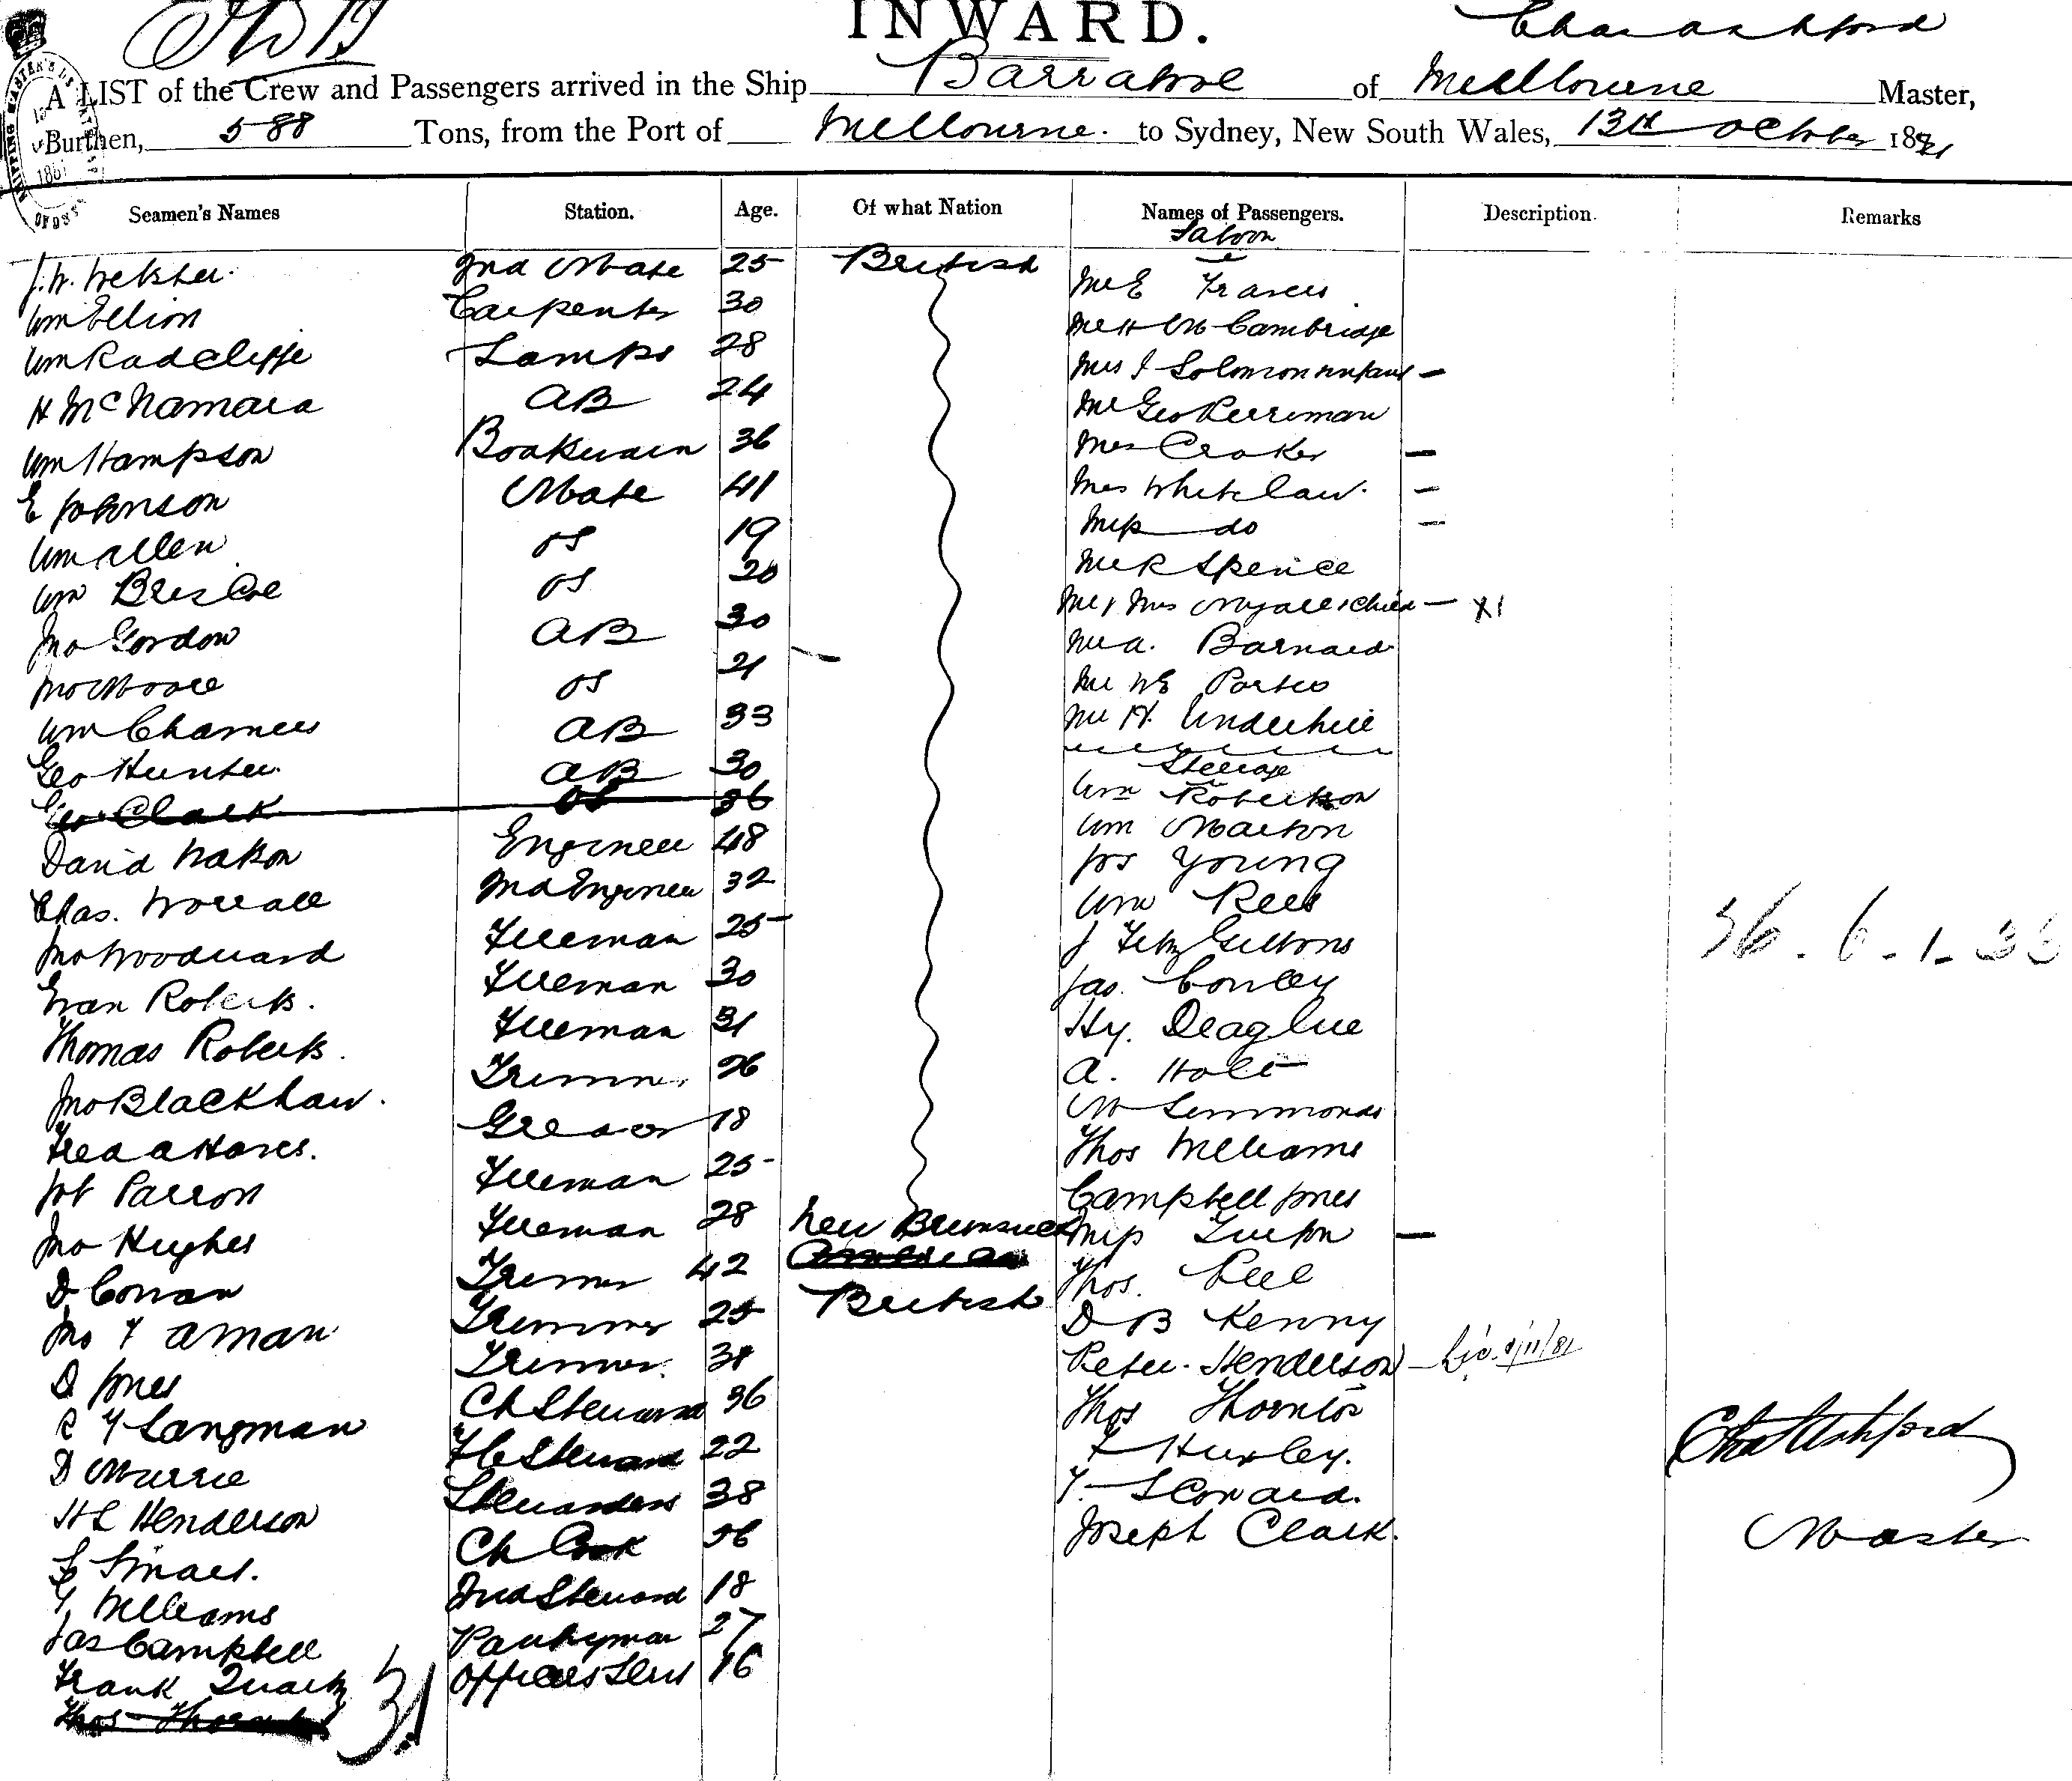 INWARD.
Chas Ashford
A LIST of the Crew and Passengers arrived in the Ship Barrabool of Melbourne Master,
Burthen, 588 Tons, from the Port of Melbourne. to Sydney, New South Wales, 13th October 1881
Seamen's Names Station. Age. Of what Nation Names of Passengers. Description. Remarks
Saloon
J. W. Webster. 2nd Mate 25 British Mr E Francis
Wm Ellison Carpenter 30 Mr H M Cambridge
Wm Radcliffe Lamps 28 Mrs J Solomon infant —
H McNamara AB 24 Mr Geo Perriman
Wm Hampson Boatswain 36 Mrs Croker —
E Johnson Mate 41 Mrs Whitelaw. —
Wm Allen OS 19 Miss do —
Wm Briscoe OS 20 Mr R Spence
Jno Gordon AB 30 Mr & Mrs Myall & Child — X1
Jno Moore OS 21 Mr A. Barnard
Wm Chalmers AB 33 Mr W E Porter
Geo Hunter AB 30 Mr H. Underhill
Steerage
Geo Clark OS 36 Wm Robertson
David Watson Engineer 48 Wm Marton
Chas. Worrall 2nd Engineer 32 Jos Young
Jno Woodward Fireman 25 Wm Rees
Evan Roberts. Fireman 30 J Fitz Gibbons 36. 6. 1. 33
Thomas Roberts. Fireman 31 Jas. Conley
Jno Blackshaw. Trimmer 26 Hy. Deaglue
Fred A Hares. Greaser 18 A. Holt
Job Parron Fireman 25 M Simmonds
Jno Hughes Fireman 28 New Brunswick Thos Williams
D Conan Trimmer 42 American Campbell Jones
Jno F Aman Trimmer 25 British Miss Turton —
D Jones Trimmer. 38 Thos. Peel
R F Langman Ch Steward 36 D B Kenny
D Murrie F C Steward 22 Peter Henderson
H L Henderson Stewardess 38 Thos Thornton
Chas Ashford
Master
Smart. Ch Cook 36 F Huxley.
Williams 2nd Steward 18 T. Leonard.
Jas Campbell Pantryman 27 Joseph Clark.
Frank Quartz Officers Servt 16
Thos Thornton
31